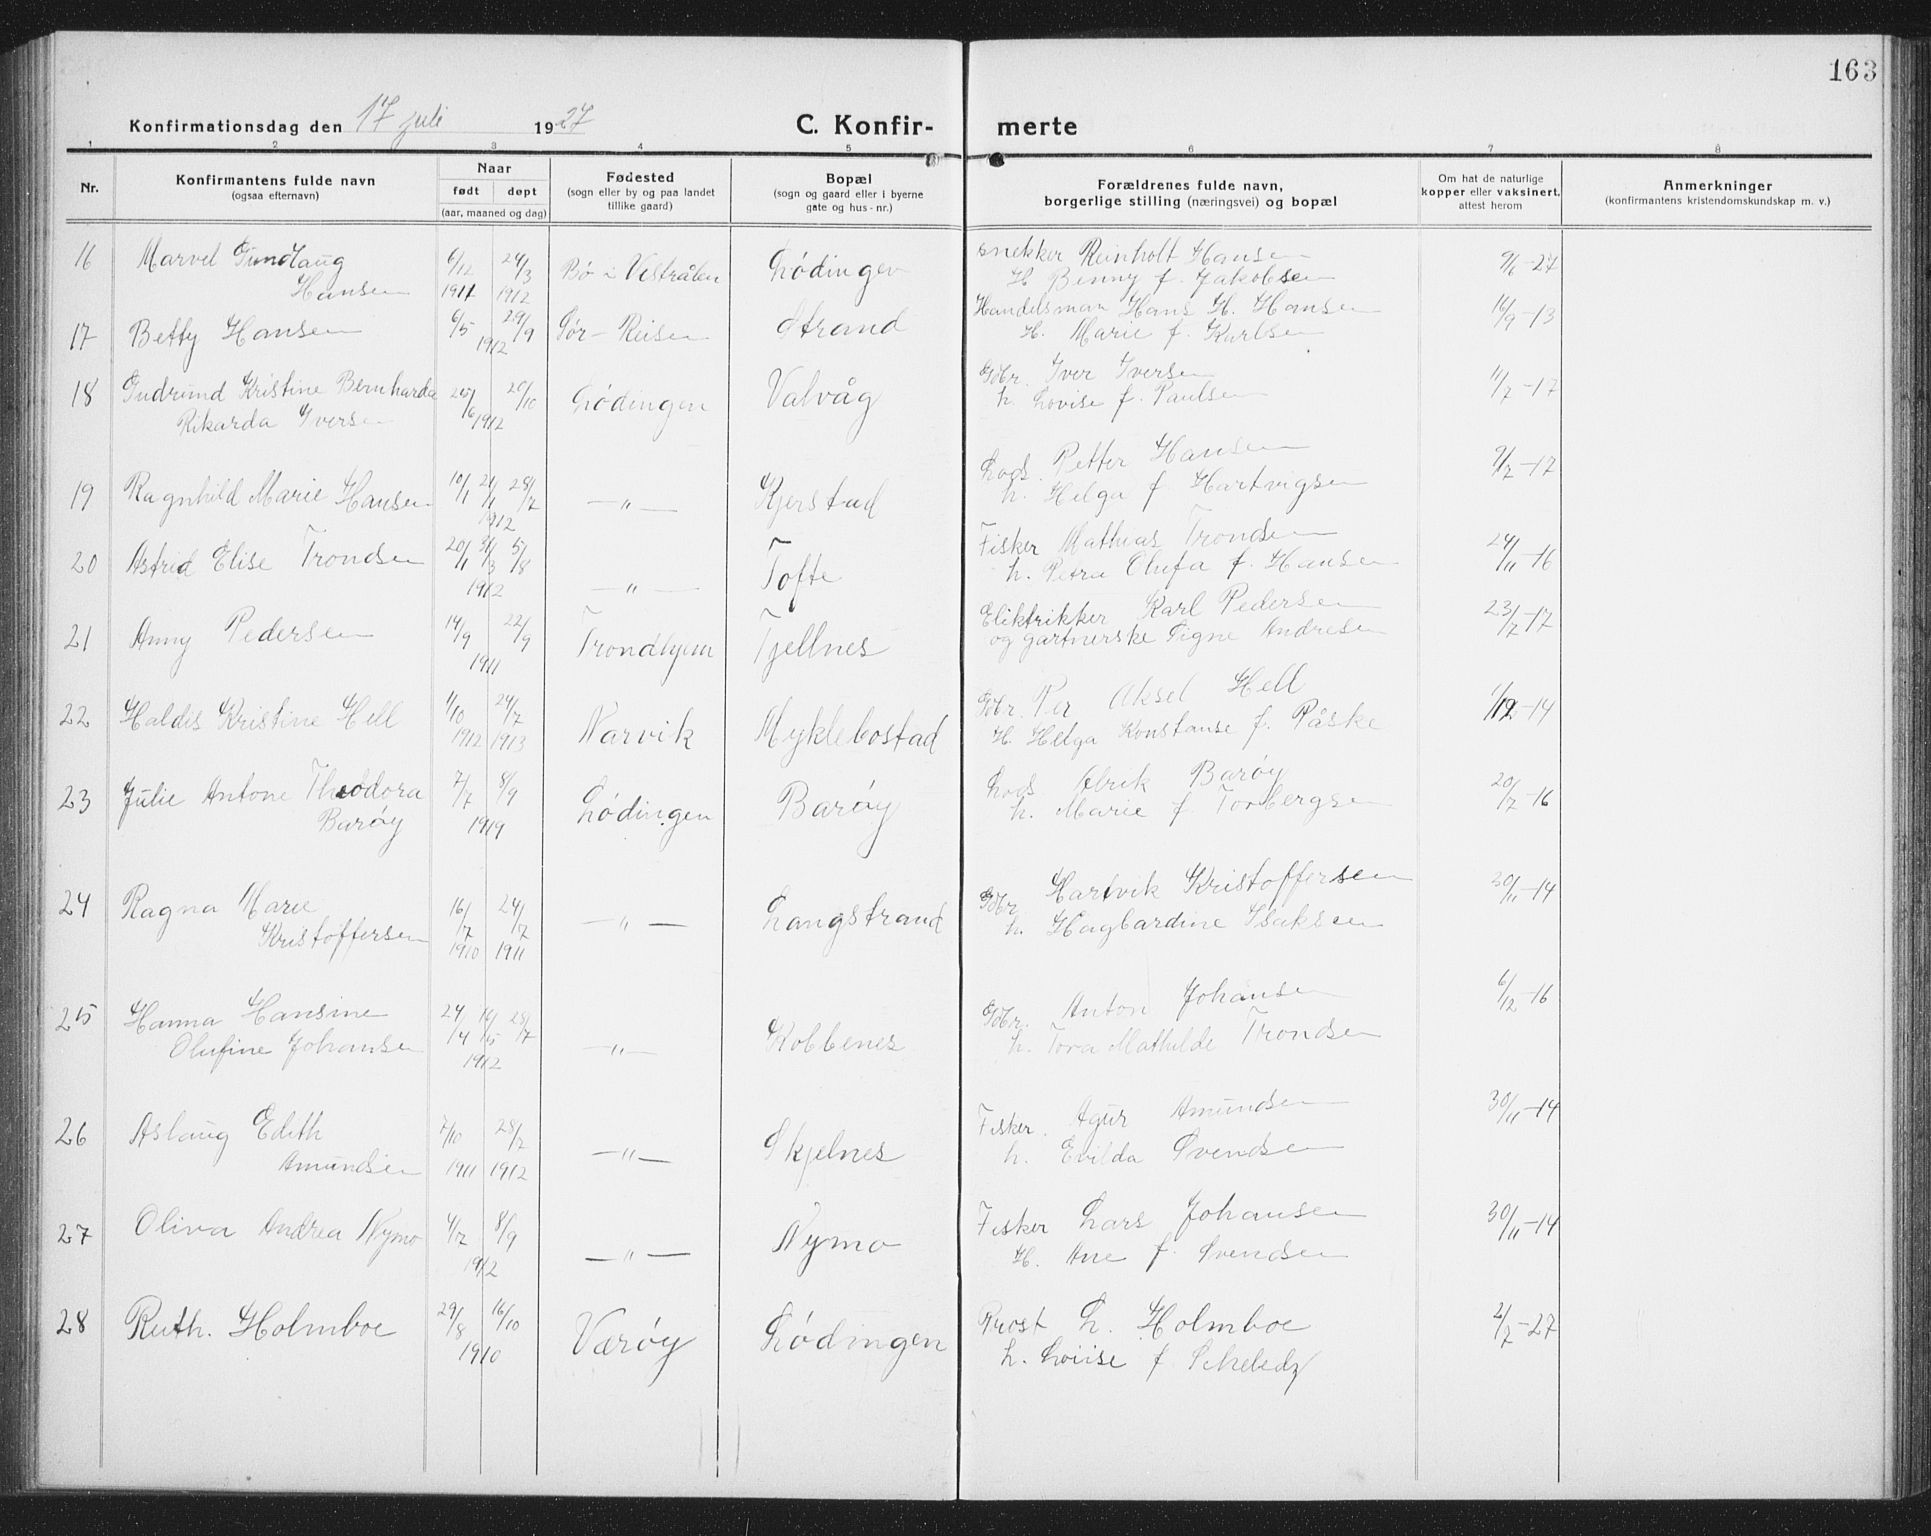 163
Konfirmationsdag den 17 juli 1927 C. Konfir- merte
1 2 3 4 5 6 7 8
Nr. Konfirmantens fulde navn (ogsaa efternavn) Naar født døpt (aar, maaned og dag) Fødested (sogn eller by og paa landet tillike gaard) Bopæl (sogn og gaard eller i byerne gate og hus-nr.) Forældrenes fulde navn, borgerlige stilling (næringsvei) og bopæl Om hat de naturlige kopper eller vaksinert, attest herom Anmerkninger (konfirmantens kristendomskundskap m. v.)
16 Marvel Gundlaug 6/12 24/3 Bø i Vestrålen Lødingen snekker Reinholt Hansen 9/6-27
Hansen 1911 1912 H. Benny f. Jakobsen
17 Betty Hansen 6/5 29/9 Sør-Reisen Strand Handelsman Hans H. Hansen 16/9-13
1912 H. Marie f. Karlsen
18 Gudrund Kristine Bernharda 25/6 20/10 Lødingen Valvåg Gbr. Iver Iversen 11/7-17
Rikarda Iversen 1912 h. Lovise f. Paulsen
19 Ragnhild Marie Hansen 10/1 21/1 28/7 —"— Kjerstad Lods. Petter Hansen 9/7-17
1912 h. Helga f. Hartvigsen
20 Astrid Elise Trondsen 20/1 31/3 5/8 —"— Tofte Fisker Mathias Trondsen 24/11-16
1912 h. Petra Olufa f. Hansen
21 Anny Pedersen 14/9 22/9 Trondhjem Tjellnes Eliktrikker Karl Pedersen 23/7-17
1911 og gartnerske Signe Andresen
22 Haldis Kristine Hell 1/10 24/7 Narvik Myklebostad Gbr. Per Aksel Hell 1/12-14
1912 1913 H. Helga Konstanse f. Påske
23 Julie Antone Theodora 7/7 8/9 Lødingen Barøy Lods Alrik Barøy 20/7-16
Barøy 1919 h. Marie f Torbergsen
24 Ragna Marie 16/7 24/7 —"— Langstrand Gbr. Hartvik Kristoffersen 30/11-14
Kristoffersen 1910 1911 h. Hagbardine Isaksen
25 Hanna Hansine 24/4 28/7 —"— Kobbenes Gbr. Anton Johansen 6/12-16
Olufine Johansen 1912 h. Tora Mathilde Trondsen
26 Aslaug Edith 7/10 28/7 —"— Skjelnes Fisker. Agur Amundsen 30/11-14
Amundsen 1911 1912 h. Evilda Svendsen
27 Oliva Andrea Nymo 4/7 8/9 —"— Nymo Fisker Lars Johansen 30/11-14
1912 H. Ane f. Svendsen
28 Ruth. Holmboe 29/8 16/10 Værøy Lødingen Prost L. Holmboe 2/7-27
1910 h. Loiise f